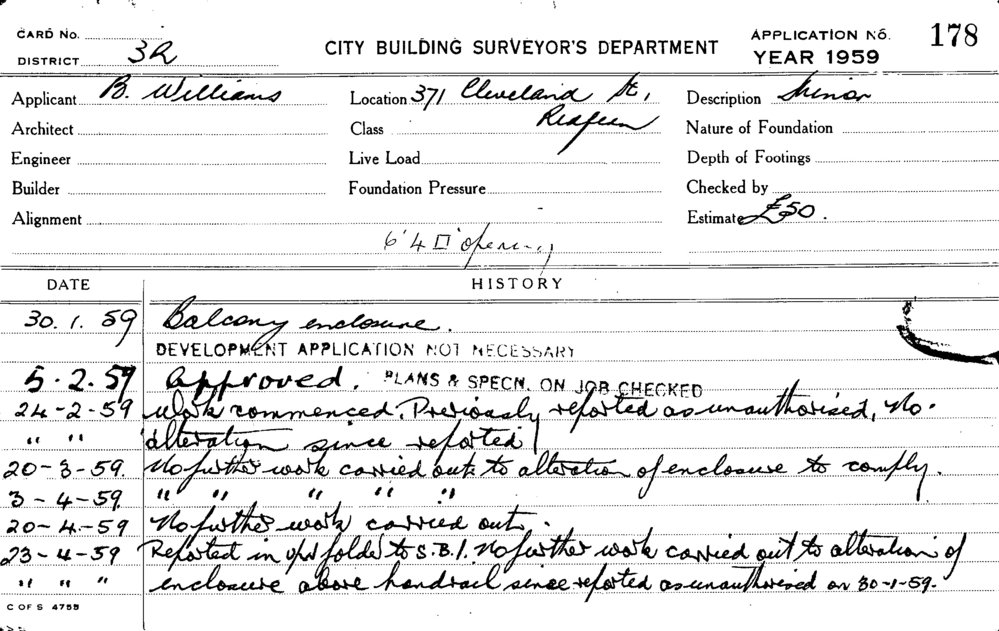 CARD No.
DISTRICT 3R
CITY BUILDING SURVEYOR'S DEPARTMENT
APPLICATION No. 178
YEAR 1959
Applicant B. Williams
Location 371 Cleveland St,
Redfern
Description Minor
Architect
Class
Nature of Foundation
Engineer
Live Load
Depth of Footings
Builder
Foundation Pressure
Checked by
Alignment
Estimate £50.
6'4 □' opening
DATE HISTORY
30. 1. 59 Balcony enclosure.
DEVELOPMENT APPLICATION NOT NECESSARY
5. 2. 59 Approved. PLANS & SPECN. ON JOB CHECKED
24-2-59 Work commenced, Previously reported as unauthorised, No.
" " alteration since reported
20-3-59. No further work carried out to alteration of enclosure to comply.
3-4-59. " " " " "
20-4-59 No further work carried out.
23-4-59 Reported in folder to S.B.I. No further work carried out to alteration of
" " " enclosure above handrail since reported as unauthorised on 30-1-59.
C OF S 4755